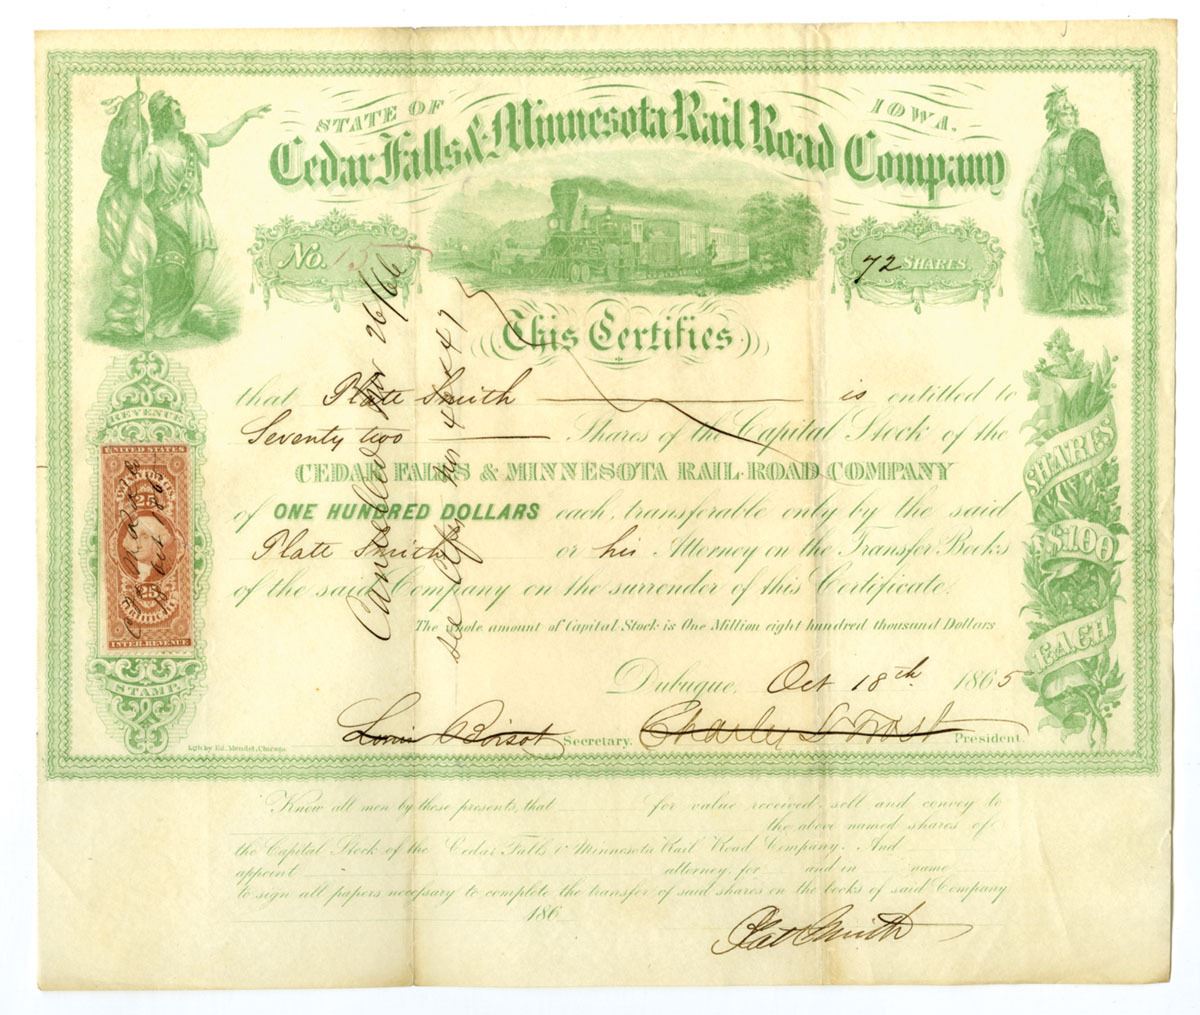 STATE OF IOWA.
Cedar Falls & Minnesota Rail Road Company
No. 15
72 SHARES.
This Certifies
that Platt Smith is entitled to
Seventy two Shares of the Capital Stock of the
CEDAR FALLS & MINNESOTA RAIL-ROAD COMPANY
of ONE HUNDRED DOLLARS each, transferable only by the said
Platt Smith or his Attorney on the Transfer Books
of the said Company on the surrender of this Certificate.
The whole amount of Capital Stock is One Million eight hundred thousand Dollars
Dubuque, Oct 18th 1865
Louis Boisot Secretary. President.
Lith by Ed. Mendel, Chicago.
Cancelled 26/66
see nos 46 & 47
REVENUE
UNITED STATES
25
25
INTER. REVENUE
STAMP.
SHARES
$100
EACH
Know all men by these presents, that for value received, sell and convey to
the above named shares of
the Capital Stock of the Cedar Falls & Minnesota Rail Road Company. And
appoint attorney for and in name
to sign all papers necessary to complete the transfer of said shares on the books of said Company
186
Plat Smith